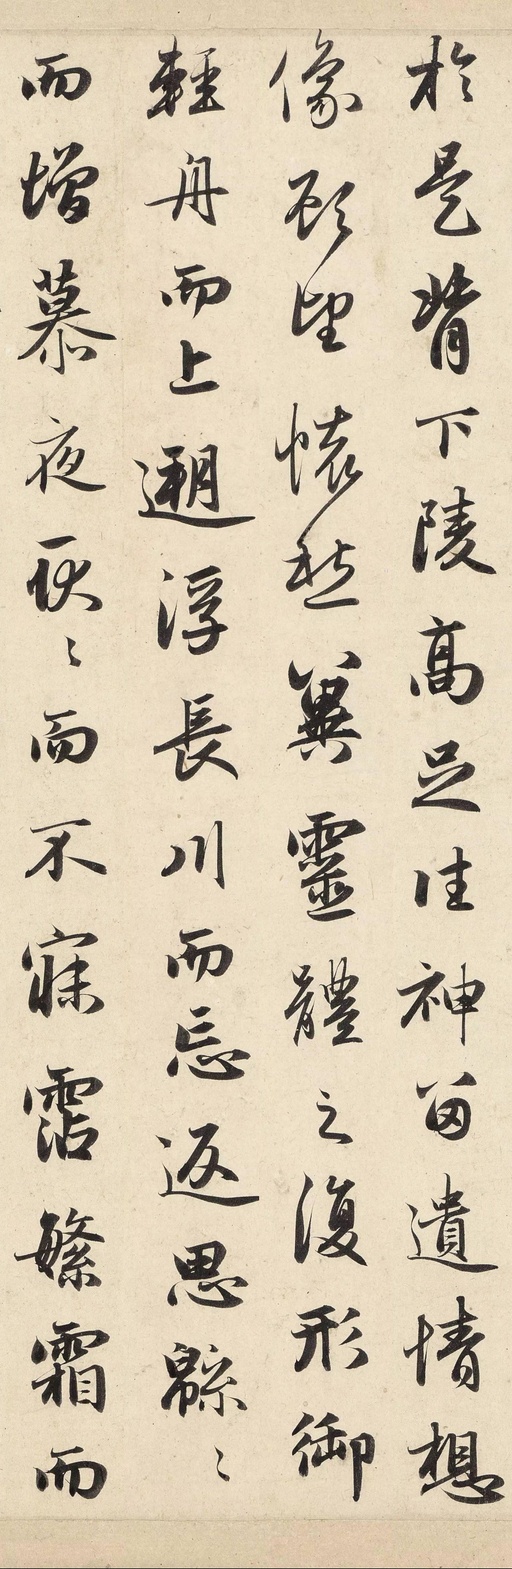 於是背下陵高足往神留遺情想
像顧望懷愁冀靈體之復形御
輕舟而上遡浮長川而忘返思緜〻
而增慕夜耿〻而不寐霑繁霜而